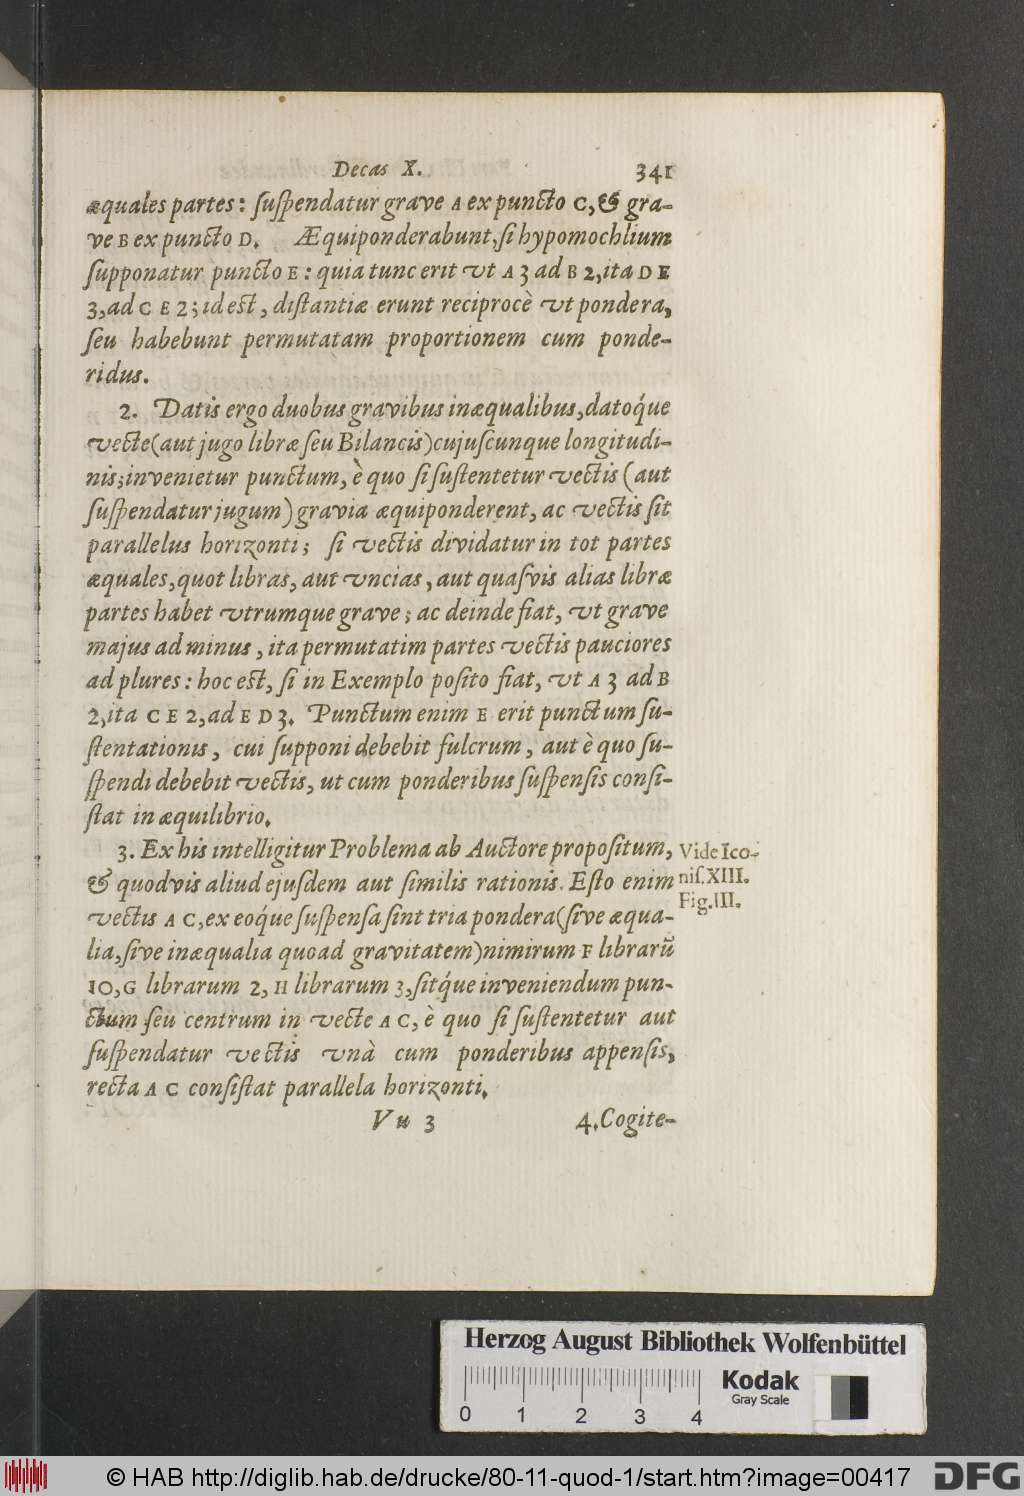 Decas X. 341
æquales partes: suspendatur grave A ex puncto C, & gra-
ve B ex puncto D. Æquiponderabunt, si hypomochlium
supponatur puncto E: quia tunc erit vt A 3 ad B 2, ita D E
3, ad C E 2; id est, distantiæ erunt reciprocè vt pondera,
seu habebunt permutatam proportionem cum ponde-
ridus.
2. Datis ergo duobus gravibus inæqualibus, datóque
vecte (aut jugo libræ seu Bilancis) cujuscunque longitudi-
nis; invenietur punctum, è quo si sustentetur vectis (aut
suspendatur jugum) gravia æquiponderent, ac vectis sit
parallelus horizonti; si vectis dividatur in tot partes
æquales, quot libras, aut vncias, aut quasvis alias libræ
partes habet vtrumque grave; ac deinde fiat, vt grave
majus ad minus, ita permutatim partes vectis pauciores
ad plures: hoc est, si in Exemplo posito fiat, vt A 3 ad B
2, ita C E 2, ad E D 3. Punctum enim E erit punctum su-
stentationis, cui supponi debebit fulcrum, aut è quo su-
spendi debebit vectis, ut cum ponderibus suspensis consi-
stat in æquilibrio.
3. Ex his intelligitur Problema ab Auctore propositum,
& quodvis aliud ejusdem aut similis rationis. Esto enim
vectis A C, ex eóque suspensa sint tria pondera (sive æqua-
lia, sive inæqualia quoad gravitatem) nimirum F librarũ
10, G librarum 2, H librarum 3, sitque inveniendum pun-
ctum seu centrum in vecte A C, è quo si sustentetur aut
suspendatur vectis vnà cum ponderibus appensis,
recta A C consistat parallela horizonti.
Vu 3 4. Cogite-
Vide Ico-
nis. XIII.
Fig. III.
Herzog August Bibliothek Wolfenbüttel
0 1 2 3 4
Kodak
Gray Scale
© HAB http://diglib.hab.de/drucke/80-11-quod-1/start.htm?image=00417
DFG